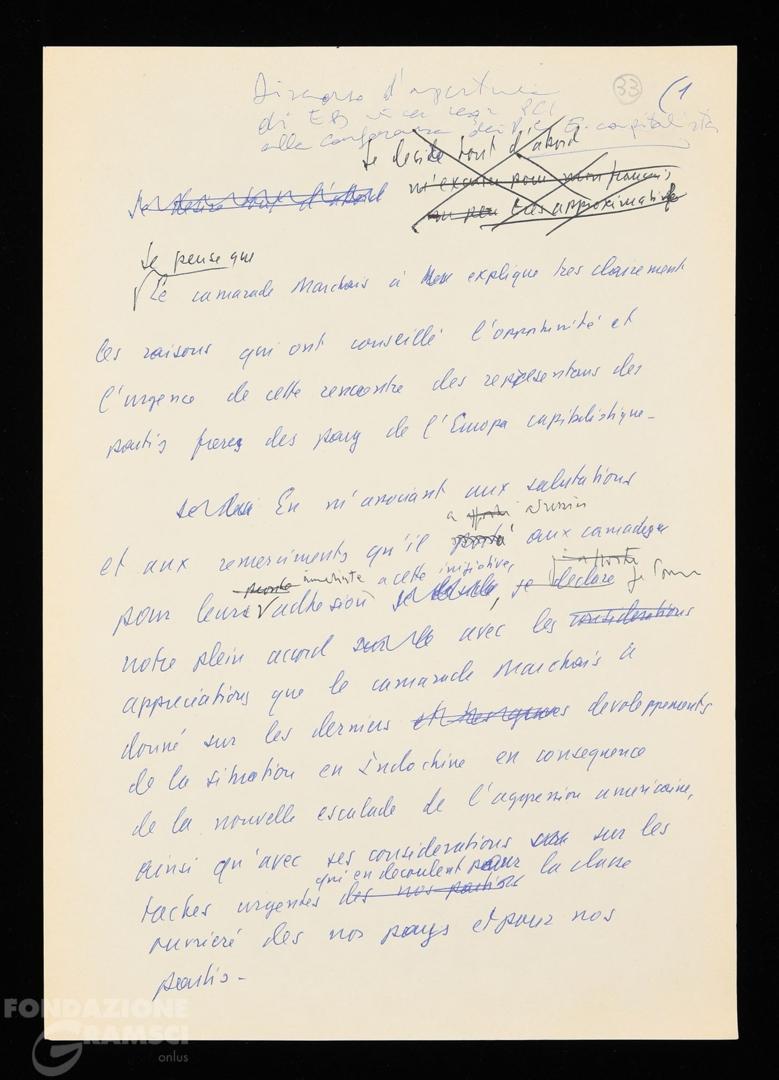 33 (1
Discorso d'apertura
di EB vice segr PCI
alla conferenza dei P.C. E. capitalista
Je décide tout d'abord
m'excuser pour mon français
un peu très approximatif
Je désire tout d'abord
Je pense que
Le camarade Marchais à expliqué tres clairement
les raisons qui ont conseillé l'opportunité et
l'urgence de cette rencontre des representans des
partis freres des pays de l'Europa capitalistique -
En m'associant aux salutations
a
et aux remerciments qu'il aux camarades
immediate a cette initiative,
pour leurs adhesion, je declare
notre plein accord avec les considerations
appreciations que le camarade Marchais à
donné sur les derniers devoloppements
de la situation en Indochine en consequence
de la nouvelle escalade de l'aggression americaine,
ainsi qu'avec ses considerations sur les
qui en decoulent pour
taches urgentes des nos partis la classe
ouvrieré des nos pays et pour nos
partis -
FONDAZIONE
GRAMSCI
onlus